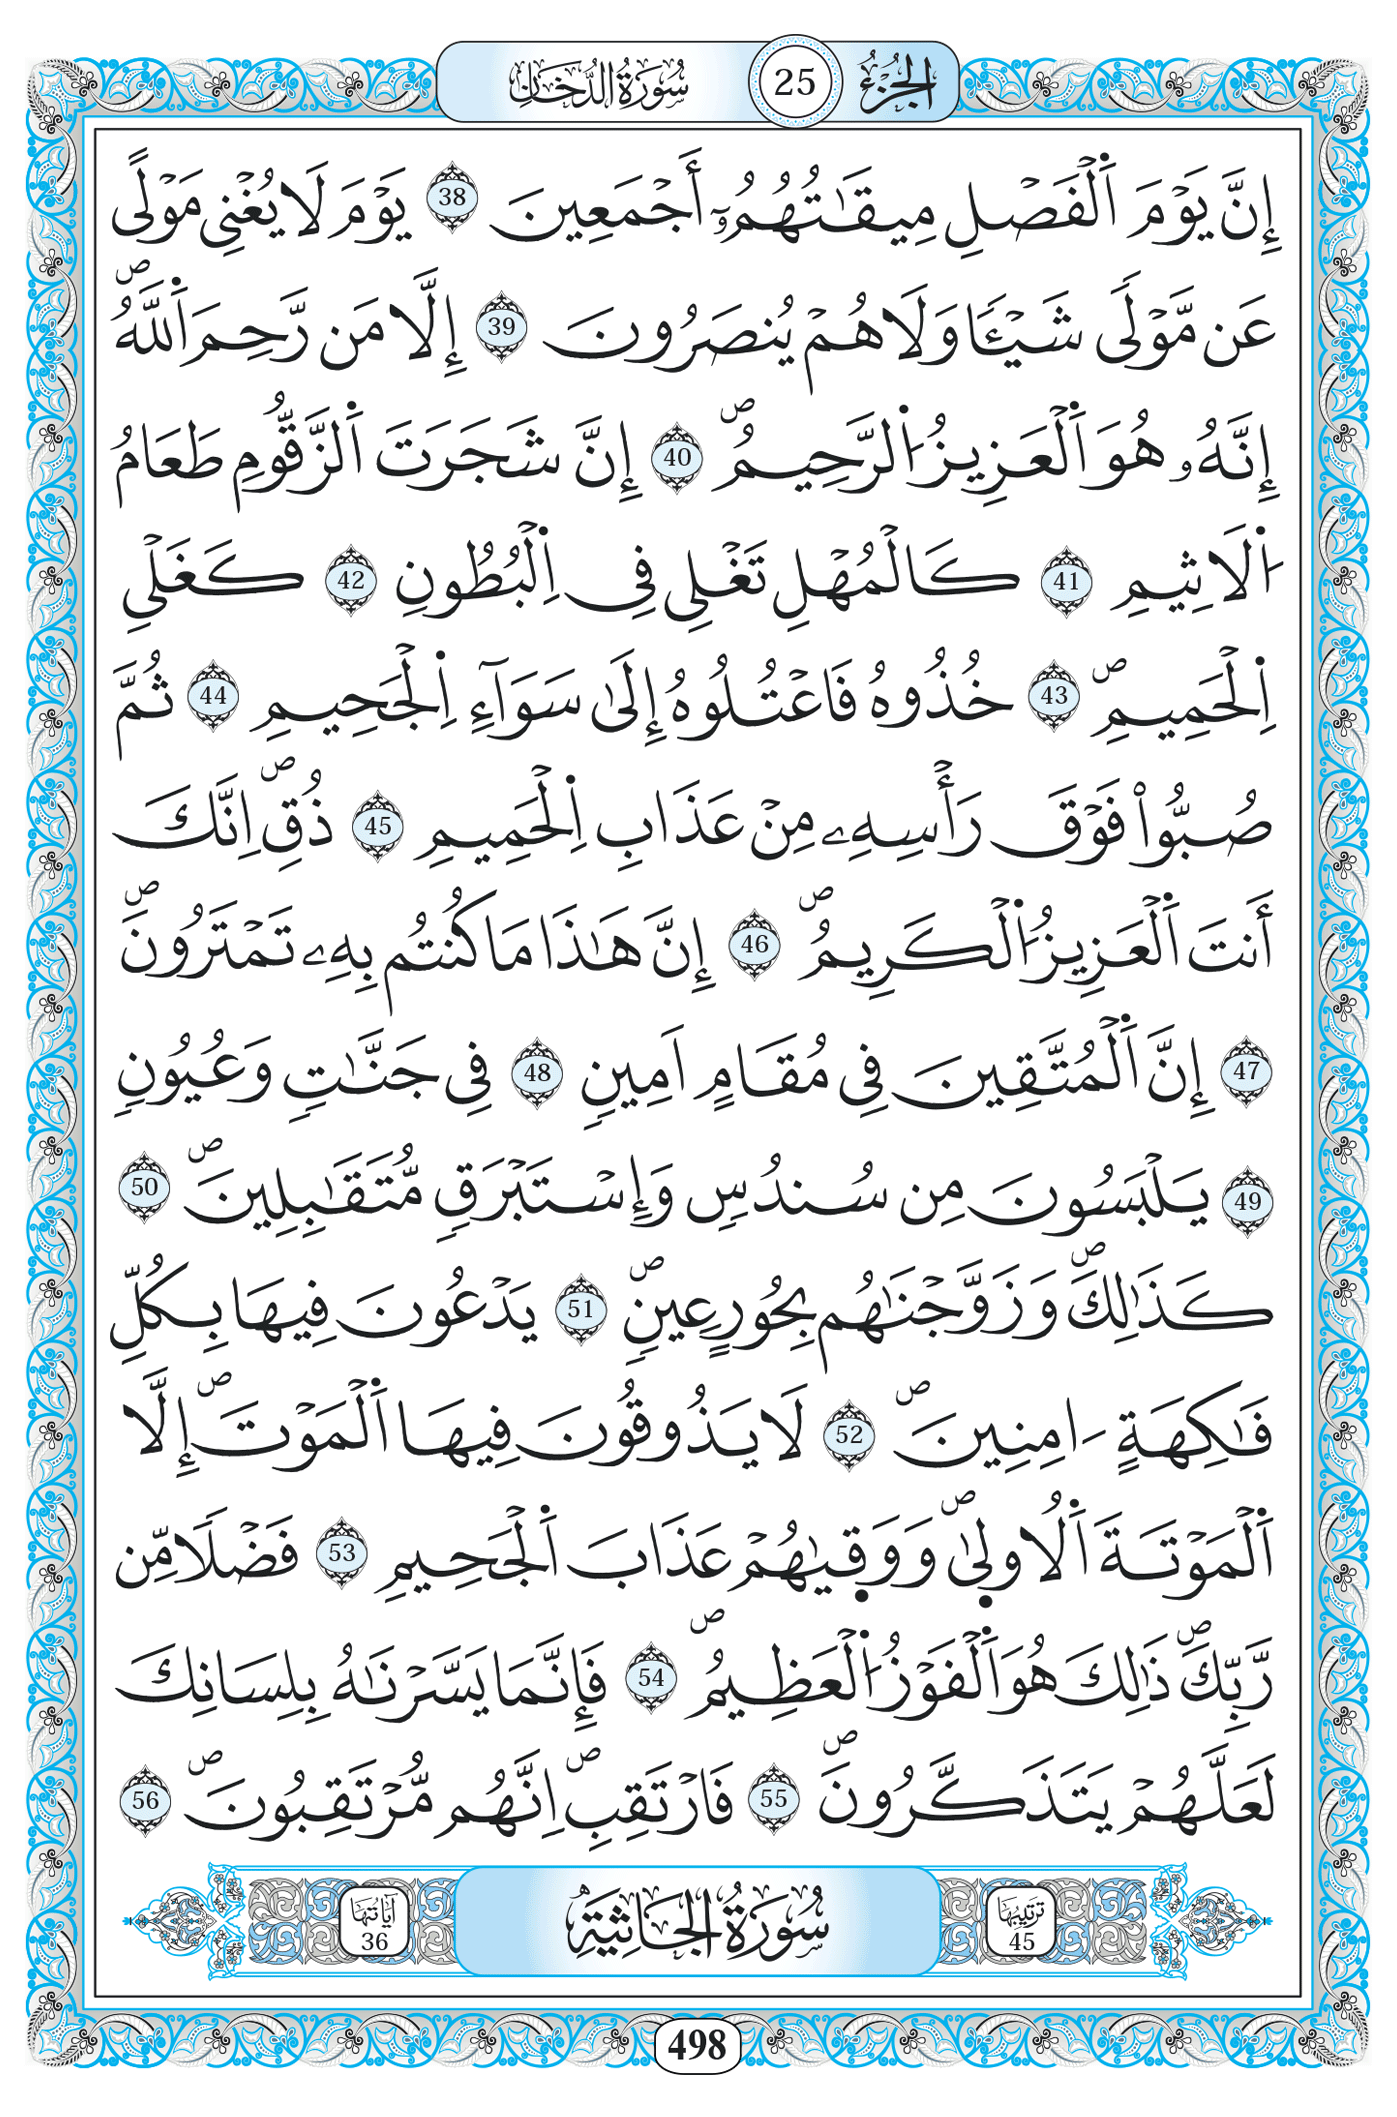 الجزء 25 سورة الدخان
إِنَّ يَوْمَ اَ۬لْفَصْلِ مِيقَٰتُهُمُۥٓ أَجْمَعِينَ 38 يَوْمَ لَا يُغْنِى مَوْلًى
عَن مَّوْلَى شَيْـٔٗا وَلَا هُمْ يُنصَرُونَ 39 إِلَّا مَن رَّحِمَ اَ۬للَّهُۖ
إِنَّهُۥ هُوَ اَ۬لْعَزِيزُ اُ۬لرَّحِيمُۖ 40 إِنَّ شَجَرَتَ اَ۬لزَّقُّومِ طَعَامُ
اُ۬لَاثِيمِ 41 كَالْمُهْلِ تَغْلِى فِى اِ۬لْبُطُونِ 42 كَغَلْىِ
اِ۬لْحَمِيمِۖ 43 خُذُوهُ فَاعْتُلُوهُ إِلَىٰ سَوَآءِ اِ۬لْجَحِيمِ 44 ثُمَّ
صُبُّواْ فَوْقَ رَأْسِهِۦ مِنْ عَذَابِ اِ۬لْحَمِيمِ 45 ذُقِۖ اِنَّكَ
أَنتَ اَ۬لْعَزِيزُ اُ۬لْكَرِيمُۖ 46 إِنَّ هَٰذَا مَا كُنتُم بِهِۦ تَمْتَرُونَۖ
47 إِنَّ اَ۬لْمُتَّقِينَ فِى مُقَامٍ اَمِينٖ 48 فِى جَنَّٰتٖ وَعُيُونٖ
49 يَلْبَسُونَ مِن سُندُسٖ وَإِسْتَبْرَقٖ مُّتَقَٰبِلِينَۖ 50
كَذَٰلِكَۖ وَزَوَّجْنَٰهُم بِحُورٍ عِينٖۖ 51 يَدْعُونَ فِيهَا بِكُلِّ
فَٰكِهَةٍ ءَامِنِينَۖ 52 لَا يَذُوقُونَ فِيهَا اَ۬لْمَوْتَۖ إِلَّا
اَ۬لْمَوْتَةَ اَ۬لُاولَىٰۖ وَوَقِيٰهُمْ عَذَابَ اَ۬لْجَحِيمِ 53 فَضْلٗا مِّن
رَّبِّكَۖ ذَٰلِكَ هُوَ اَ۬لْفَوْزُ اُ۬لْعَظِيمُۖ 54 فَإِنَّمَا يَسَّرْنَٰهُ بِلِسَانِكَ
لَعَلَّهُمْ يَتَذَكَّرُونَۖ 55 فَارْتَقِبِۖ اِنَّهُم مُّرْتَقِبُونَۖ 56
ترتيبها 45 سورة الجاثية آياتها 36
498